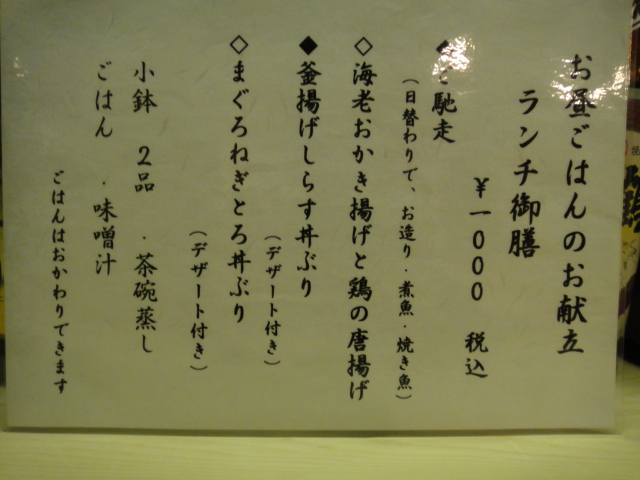 お昼ごはんのお献立
ランチ御膳
¥一000 税込
馳走
(日替わりで、お造り・煮魚・焼き魚)
◇海老おかき揚げと鶏の唐揚げ
◆釜揚げしらす丼ぶり
(デザート付き)
◇まぐろねぎとろ丼ぶり
(デザート付き)
小鉢 2品 ・茶碗蒸し
ごはん ・味噌汁
ごはんはおかわりできます